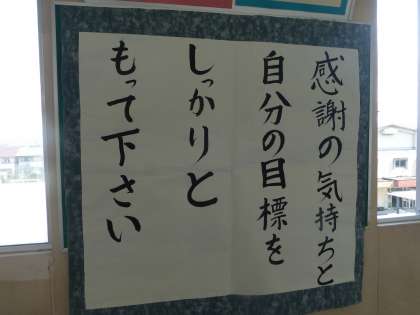 感謝の気持ちと
自分の目標を
しっかりと
もって下さい